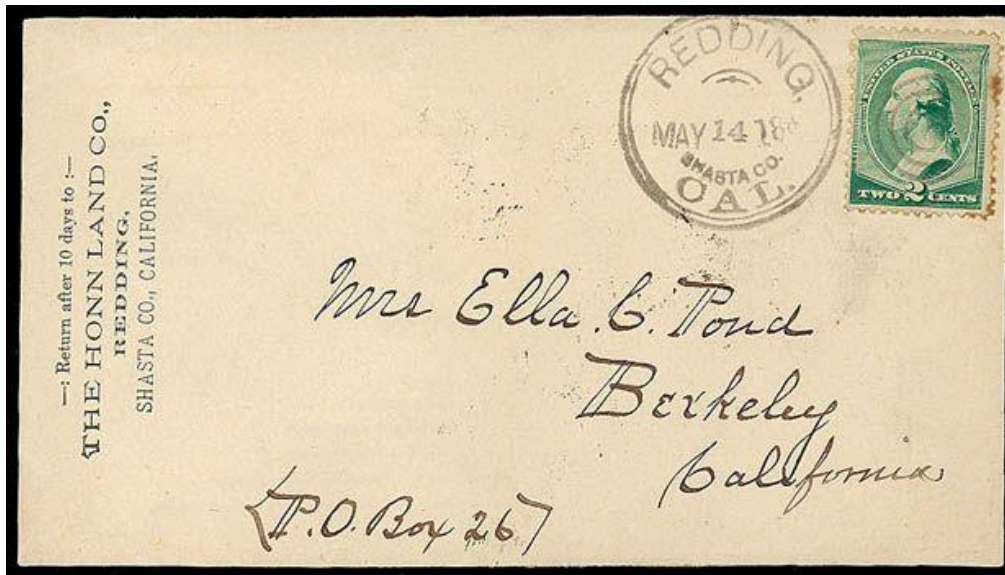 —: Return after 10 days to :—
THE HONN LAND CO.,
REDDING,
SHASTA CO., CALIFORNIA.
REDDING,
MAY 14 188
SHASTA CO.
CAL.
UNITED STATES POSTAGE
TWO 2 CENTS
Mrs Ella. C. Pond
Berkeley
California
(P.O. Box 26)